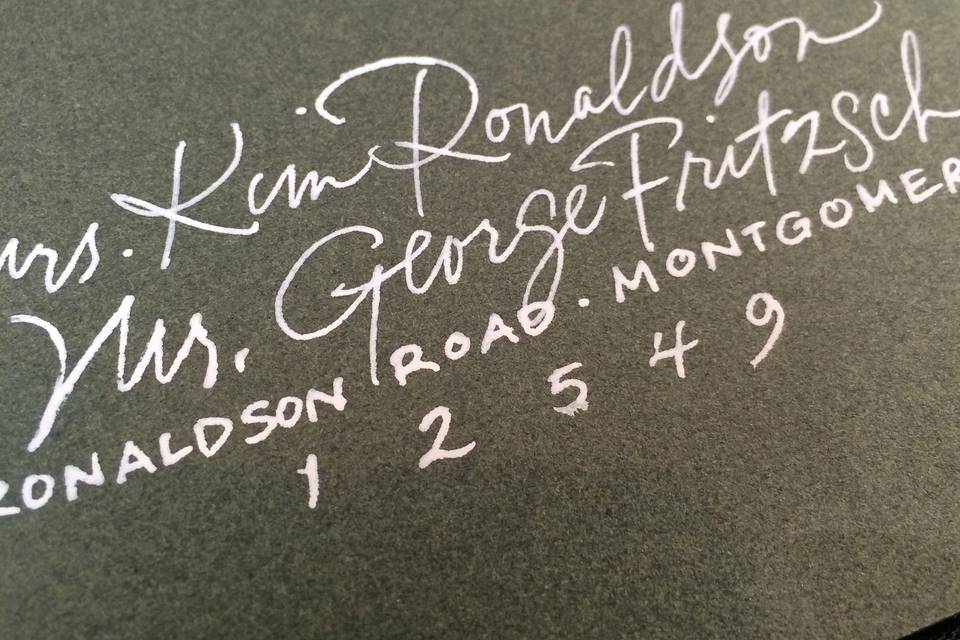 Mrs. Kim Ronaldson
Mr. George Fritzsch
RONALDSON ROAD · MONTGOMER
1 2 5 4 9